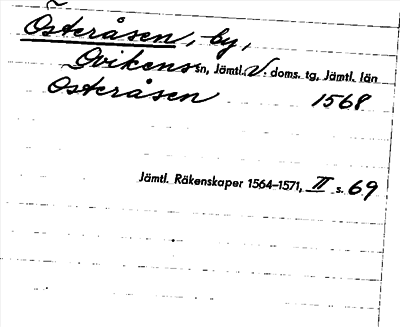 Österåsen, by,
Ovikens sn, Jämtl. V. doms. tg, Jämtl. län
Osteråsen 1568
Jämtl. Räkenskaper 1564–1571, II s. 69